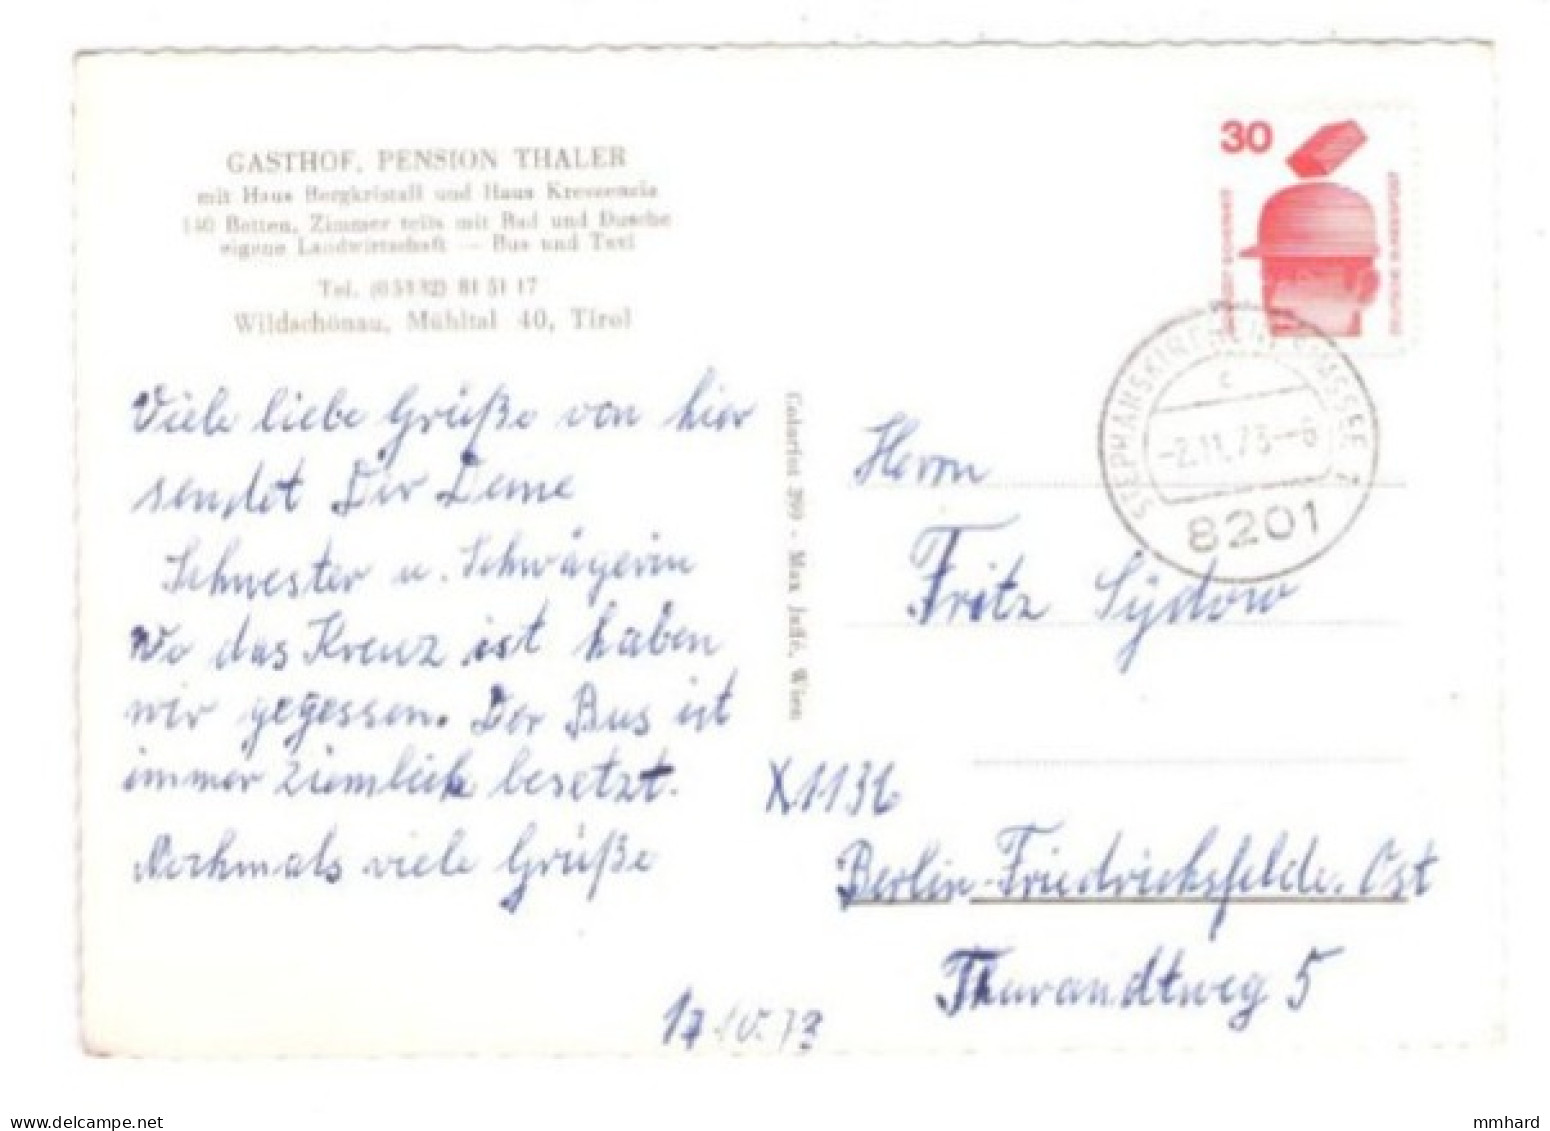 GASTHOF, PENSION THALER
mit Haus Bergkristall und Haus Kreszenzia
140 Betten, Zimmer teils mit Bad und Dusche
eigene Landwirtschaft — Bus und Taxi
Tel. (05332) 81 51 17
Wildschönau, Mühltal 40, Tirol
Viele liebe Grüße von hier
sendet Dir Deine
Schwester u. Schwägerin
Wo das Kreuz ist haben
wir gegessen. Der Bus ist
immer ziemlich besetzt.
Nochmals viele Grüße
Colorfot 399 - Max Jaffé, Wien
30
DEUTSCHE BUNDESPOST
STEPHANSKIRCHEN
c
-2.11.73--6
8201
Herrn
Fritz Sydow
X1136
Berlin-Friedrichsfelde. Ost
Tharandtweg 5
10.73
mcm-online.net
mmhard